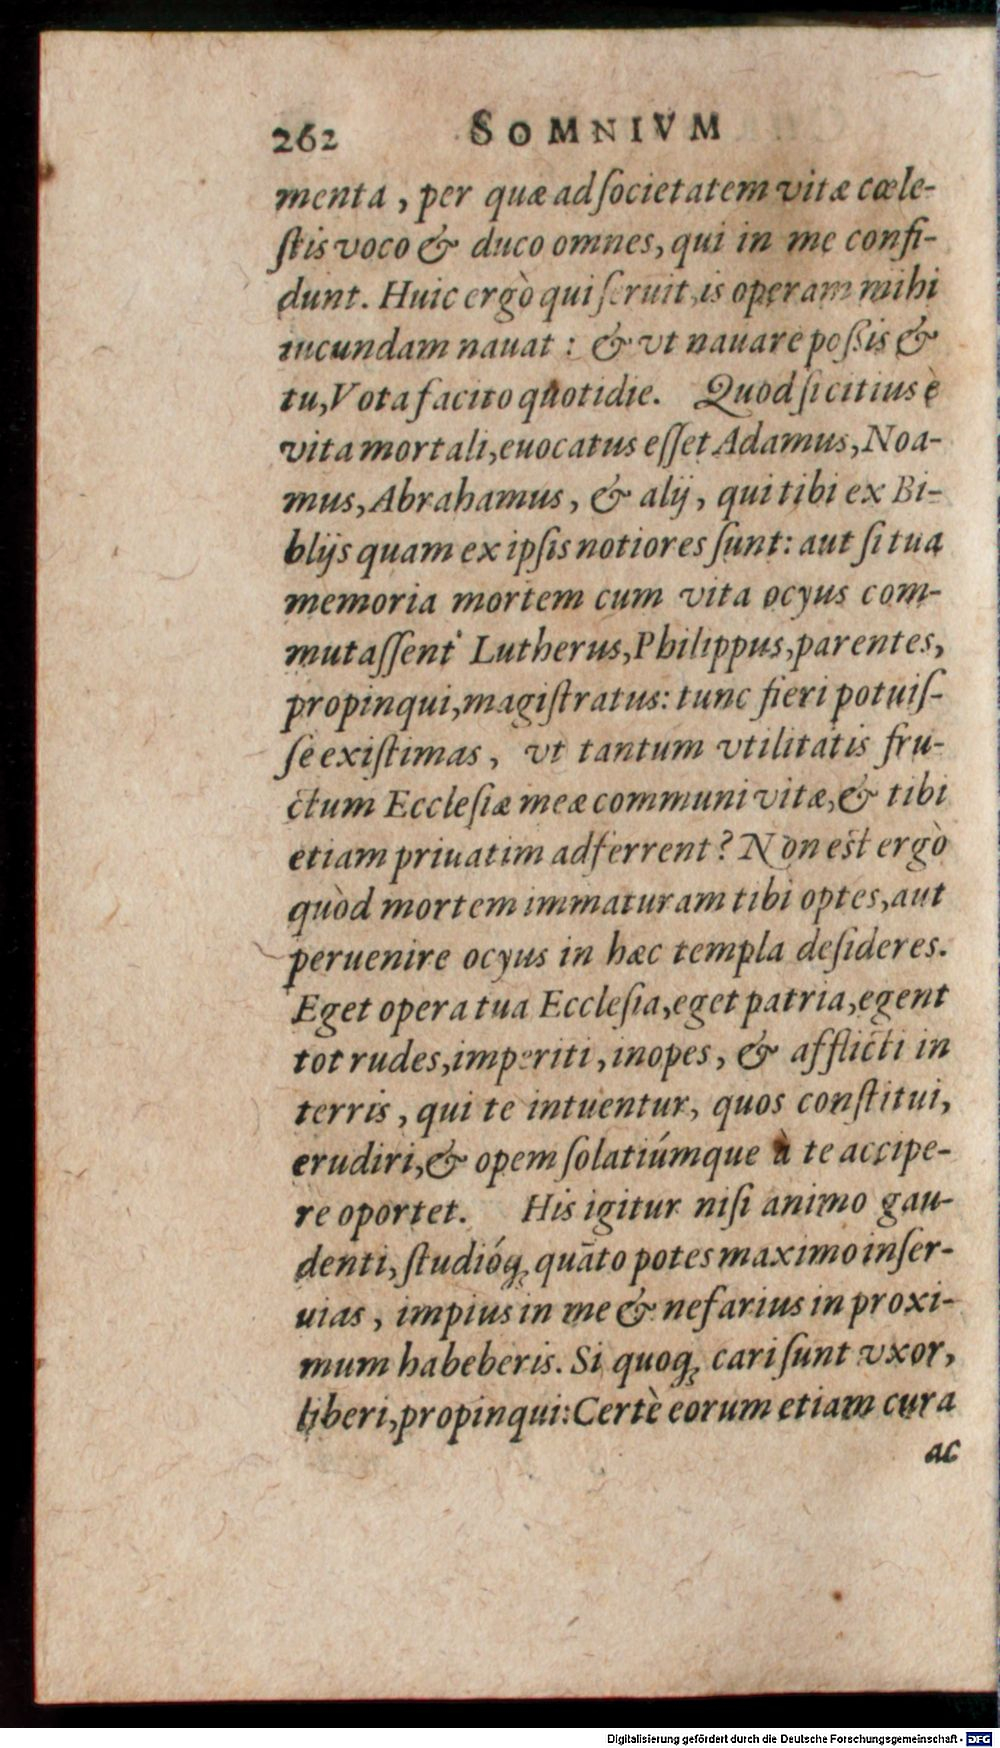 262 SOMNIVM
menta, per quæ ad ſocietatem vitæ cœle-
ſtis voco & duco omnes, qui in me confi-
dunt. Huic ergò qui ſeruit, is operam mihi
iucundam nauat : & vt nauare poſsis &
tu, Vota facito quotidie. Quod ſi citius è
vita mortali, euocatus eſſet Adamus, Noa-
mus, Abrahamus, & alij, qui tibi ex Bi-
blijs quam ex ipſis notiores ſunt: aut ſi tua
memoria mortem cum vita ocyus com-
mutaſſent Lutherus, Philippus, parentes,
propinqui, magiſtratus: tunc fieri potuiſ-
ſe exiſtimas, vt tantum vtilitatis fru-
ctum Eccleſiæ meæ communi vitæ, & tibi
etiam priuatim adferrent? Non eſt ergò
quòd mortem immaturam tibi optes, aut
peruenire ocyus in hæc templa deſideres.
Eget opera tua Eccleſia, eget patria, egent
tot rudes, imperiti, inopes, & afflicti in
terris, qui te intuentur, quos conſtitui,
erudiri, & opem ſolatiúmque à te accipe-
re oportet. His igitur niſi animo gau-
denti, ſtudióq; quāto potes maximo inſer-
uias, impius in me & nefarius in proxi-
mum habeberis. Si quoq; cari ſunt vxor,
liberi, propinqui: Certè eorum etiam cura
ac
Digitalisierung gefördert durch die Deutsche Forschungsgemeinschaft - DFG